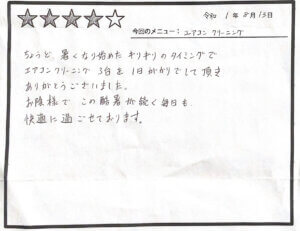 令和 1年 8月 13日
今回のメニュー： エアコン クリーニング
ちょうど 暑くなり始めた ギリギリのタイミングで
エアコンクリーニング 3台を 1日がかりでして頂き
ありがとうございました。
お陰様で この酷暑が続く毎日も
快適に過ごせております。